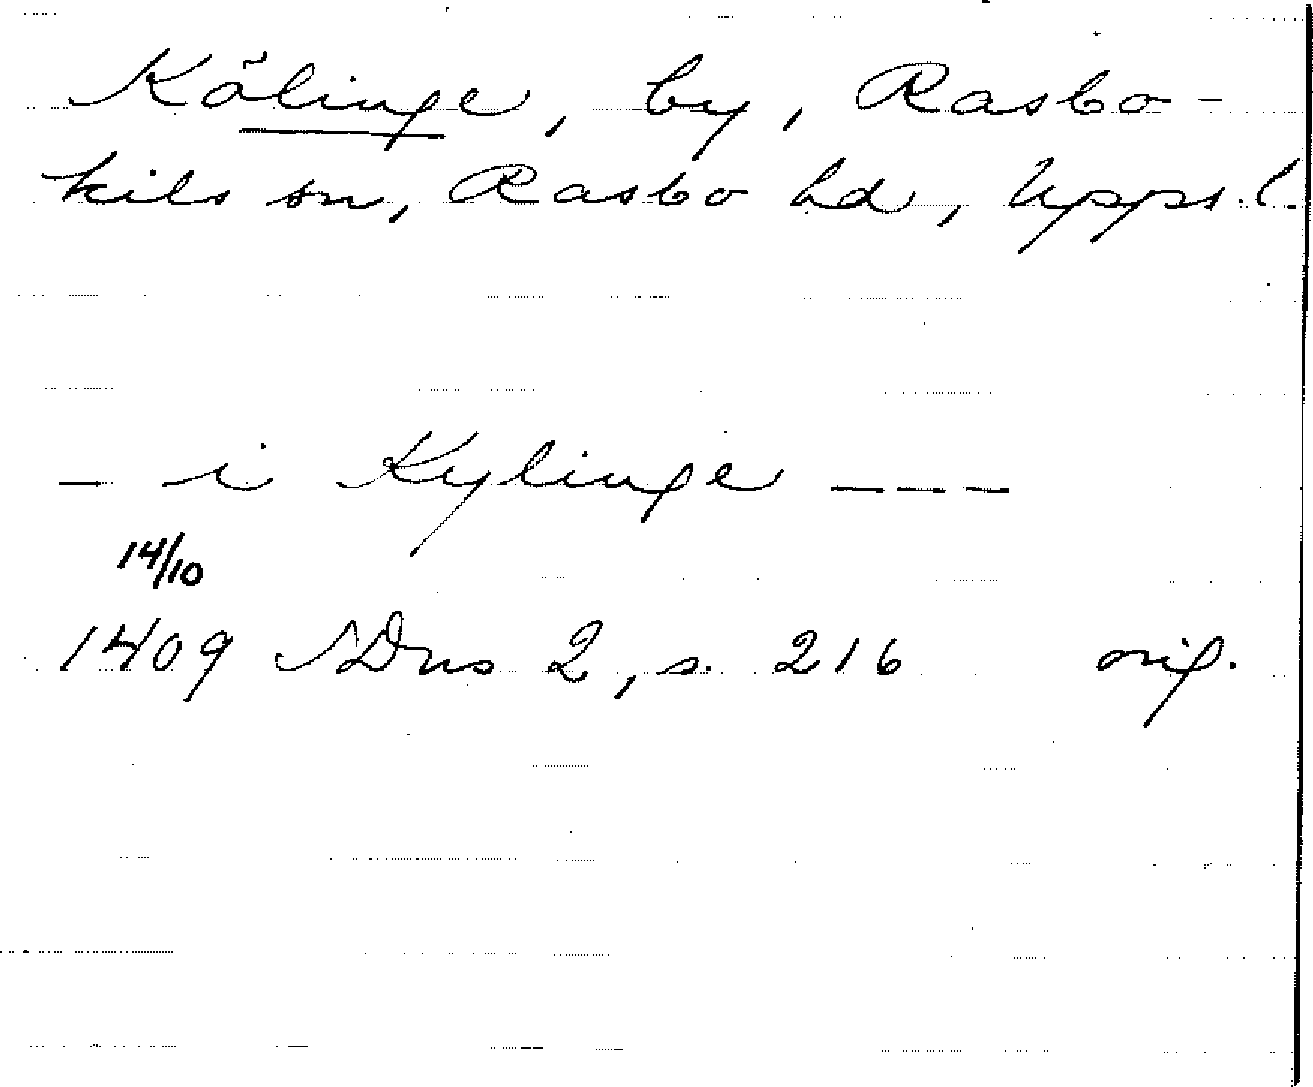 Kölinge, by, Rasbo-
kils sn, Rasbo hd, Upps. l.
– i Kylinge – – –
14/10
1409 SDns 2, s. 216 orig.